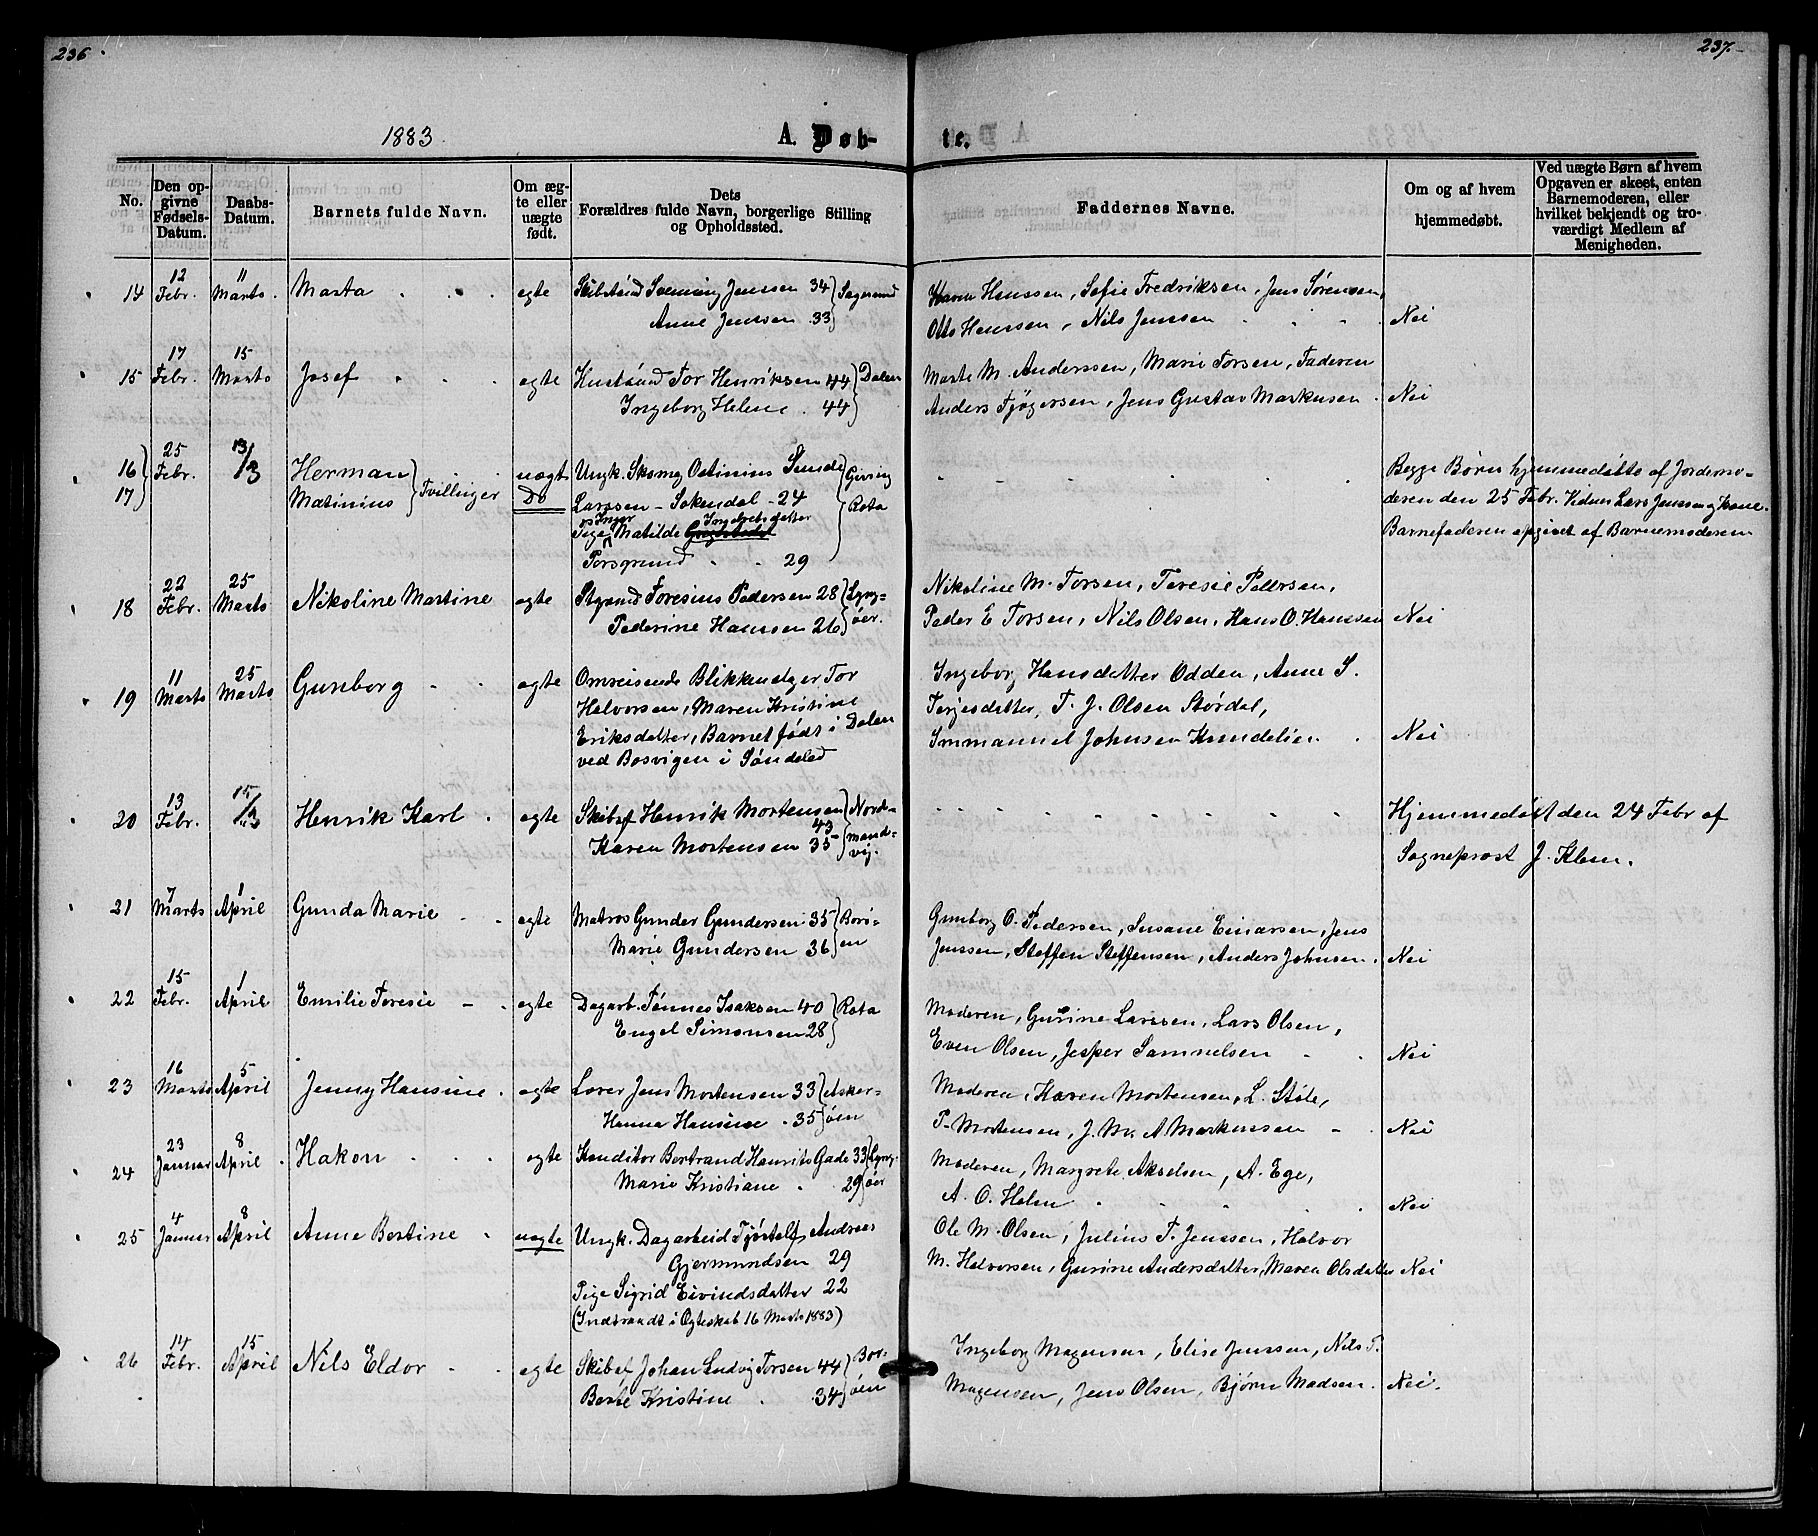 236
237.
1883
A. Døb-
te.
No.
Den opgivne Fødsels-Datum.
Daabs-Datum.
Barnets fulde Navn.
Om ægte eller uægte født.
Dets Forældres fulde Navn, borgerlige Stilling og Opholdssted.
Faddernes Navne.
Om og af hvem hjemmedøbt.
Ved uægte Børn af hvem Opgaven er skeet, enten Barnemoderen, eller hvilket bekjendt og troværdigt Medlem af Menigheden.
14 12 Febr. 11 Marts. Marta egte Skibstømd Svening Jenssen 34 Sagesund
Anne Jenssen 33
Hanssen, Sofie Fredriksen, Jens Sørensen,
Otto Hanssen, Nils Jenssen Nei
15 17 Febr. 15 Marts Josef egte Tor Henriksen 44 Dalen
Ingeborg Helene 44
Marte M. Anderssen, Marie Torsen, Faderen
Anders Tjøgersen, Jens Gustav Markusen Nei
16 17 25 Febr. 13/3 Herman Matinius Tvillinger uægt Do
Ungk. Skomg Ostinius Sunde Giving
Larssen - Sokendal - 24 Rota
og Inger Ingebretsdatter
Pige Matilde
Porsgrund 29
Begge Børn hjemmedøbte af Jordemo-
deren den 25 Febr. Vidner Lars Jenssen og Kone.
Barnefaderen opgivet af Barnemoderen
18 22 Febr. 25 Marts Nikoline Martine egte Styrmd Toresius Pedersen 28 Lyng-
Pederine Hanssen 26 øer.
Nikoline M. Torsen, Teresie Pettersen,
Peder E Torsen, Nils Olsen, Hans O. Hanssen Nei
19 11 Marts 25 Marts Gunborg egte Omreisende Blikkenslager Tor
Halvorsen, Maren Kristine
Eriksdatter, Barnet født i Dalen
ved Bosvigen i Søndeled
Ingeborg Hansdatter Odden, Anne S.
Terjesdatter, T. J. Olsen Størdal,
Immanuel Johnsen Nei
20 13 Febr. 15/3 Henrik Karl egte Skibsf Henrik Mortensen 43 Nord-
Karen Mortensen 35 mand-
vig.
Hjemmedøbt den 24 Febr af
Sogneprost J. Klem.
21 7 Marts 1 April Gunda Marie egte Matros Gunder Gundersen 35 Borø-
Marie Gundersen 36 en
Gunborg O. Pedersen, Susane Einarsen, Jens
Jenssen, Steffen Steffensen, Anders Johnsen. Nei
22 15 Febr. 1 April Emilie Toresie egte Dagarb. Tønnes Isaksen 40 Rota
Engel Simonsen 28
Moderen, Gurine Larssen, Lars Olsen,
Even Olsen, Jesper Samuelsen Nei
23 16 Marts 5 April Jenny Hansine egte Lærer Jens Mortensen 33 Asker-
Hanna Hansine 35 øen
Moderen, Karen Mortensen, L. Støle,
P. Mortensen, J. M. A Markussen Nei
24 23 Januar 8 April Hakon egte Konditor Bertrand Hanrits Gade 33 Lyng-
Marie Kristiane 29 øer
Moderen, Margrete Akselsen, A. Ege,
A. O. Holm Nei
25 4 Januar 8 April Anne Bertine uegte Ungk. Dagarbeid Tjøstolf Andreas
Gjermundsen 29
Pige Sigrid Eivindsdatter 22
(Indtraadt i Egteskab 16 Marts 1883)
Ole M. Olsen, Julius T. Jenssen, Halvor
M. Halvorsen, Gurine Andersdatter, Maren Olsdatter Nei
26 14 Febr. 15 April Nils Eldor egte Skibsf Johan Ludvig Torsen 44 Bor-
Berte Kristine 34 øen
Ingeborg Mogensen, Elise Jenssen, Nils T.
Mogensen, Jens Olsen, Bjørn Madsen. Nei.